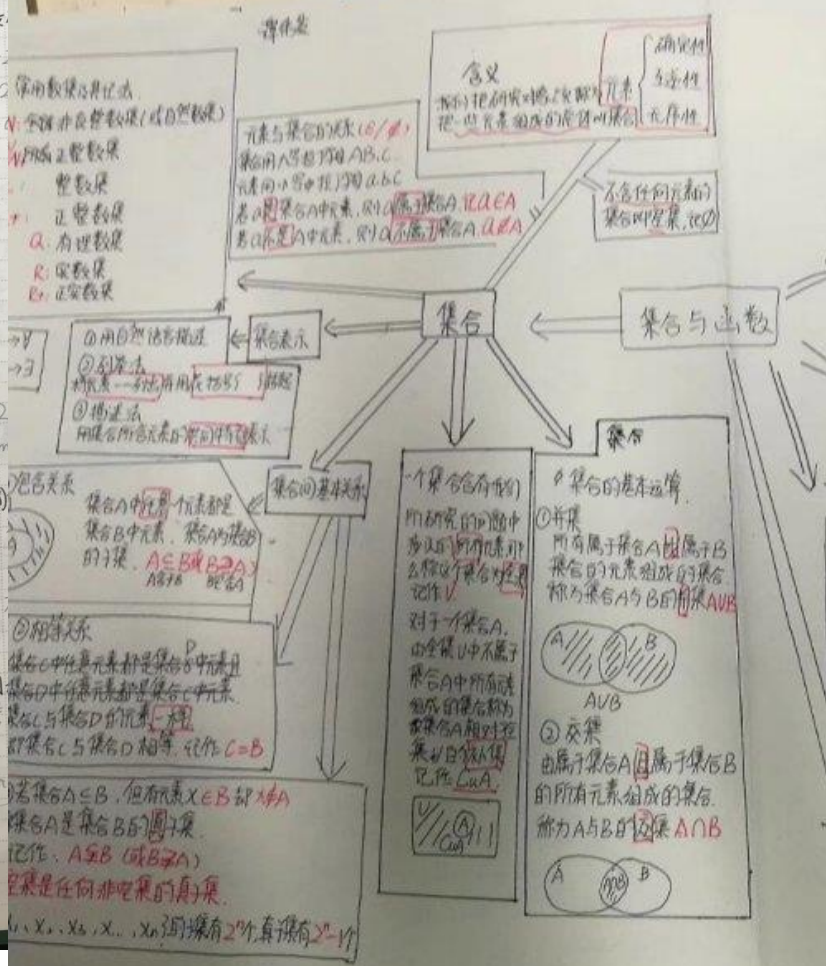 含义
我们把研究对象统称为元素
把一些元素组成的总体叫集合
确定性
互异性
无序性
不含任何元素的
集合叫空集,记∅
常用数集及其记法
N: 全体非负整数集(或自然数集)
正整数集
整数集
正整数集
Q: 有理数集
R: 实数集
R+: 正实数集
元素与集合的关系(∈/∉)
集合用大写字母A,B,C
元素用小写字母a,b,c
若a是集合A中元素,则a属于集合A,记a∈A
若a不是A中元素,则a不属于集合A,a∉A
集合
集合与函数
集合表示
①用自然语言描述
②列举法
将元素一一列出并用花括号{ }括起
③描述法
用集合所含元素的共同特征表示
集合间基本关系
包含关系
集合A中任意一个元素都是
集合B中元素,集合A为集合B
的子集. A⊆B或(B⊇A)
A含于B B包含A
②相等关系
集合C中任意元素都是集合D中元素且
集合D中任意元素都是集合C中元素.
集合C与集合D的元素一样
即集合C与集合D相等.记作C=B
若集合A⊆B,但有元素x∈B却x∉A
集合A是集合B的真子集.
记作. A⫋B (或B⫌A)
空集是任何非空集的真子集.
x₂, x₃, x.., xₙ}的子集有2ⁿ个,真子集有2ⁿ-1个
一个集合含有我们
所研究的问题中
涉及的所有元素那
么称这个集合为全集
记作U
对于一个集合A,
由全集U中不属于
集合A中所有元素
组成的集合称为
集合A相对于
集U的补集
记作CuA
U
A
CuA
集合
集合的基本运算
①并集
所有属于集合A或属于B
集合的元素组成的集合
称为集合A与B的并集A∪B
A
B
AUB
②交集
由属于集合A且属于集合B
的所有元素组成的集合.
称为A与B的交集 A∩B
A
A∩B
B